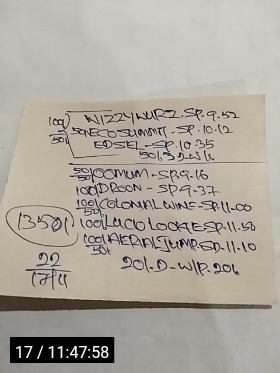 100/ WIZZYWURZ. SP. 9.52
50/ ECO SUMMIT. SP. 10.12
50/ EDSEL - SP. 10.35
50/. 3
50/ OOMUM - SP. 9.16
50/
100/ DROON - SP. 9.37
100/ COLONIAL WINE - SP. 11.00
50/
100/ LUCIO LOOKTE SP. 11.50
1350/
100/ AERIAL JUMP. SP. 11.10
50/
22 20/. D - W/P. 20/
17/11
17 / 11:47:58